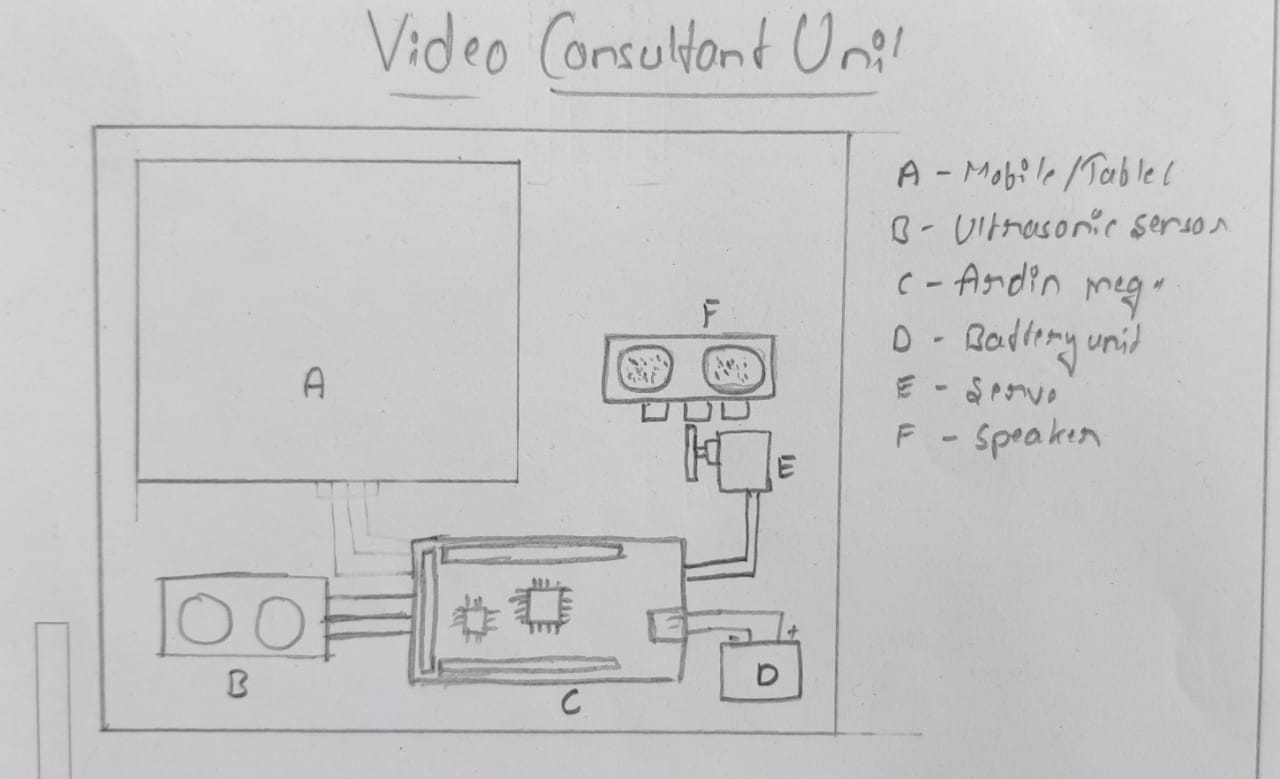 Video Consultant Unit
A - Mobile/Tablet
B - Ultrasonic sensor
C - Ardin mega
D - Battery unit
E - Servo
F - Speaker
F
A
E
- +
D
B
C